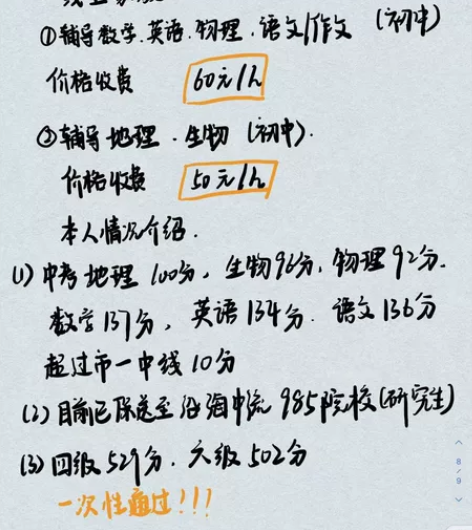 ①辅导数学.英语.物理.语文/作文 (初中)
价格收费 60元/h
②辅导地理.生物 (初中).
价格收费 50元/h
本人情况介绍.
(1) 中考地理 100分, 生物96分, 物理92分.
数学137分, 英语134分. 语文136分
超过市一中线10分
(2) 目前已保送至 中流 985院校(研究生)
(3) 四级529分. 六级502分
一次性通过!!!
8/9